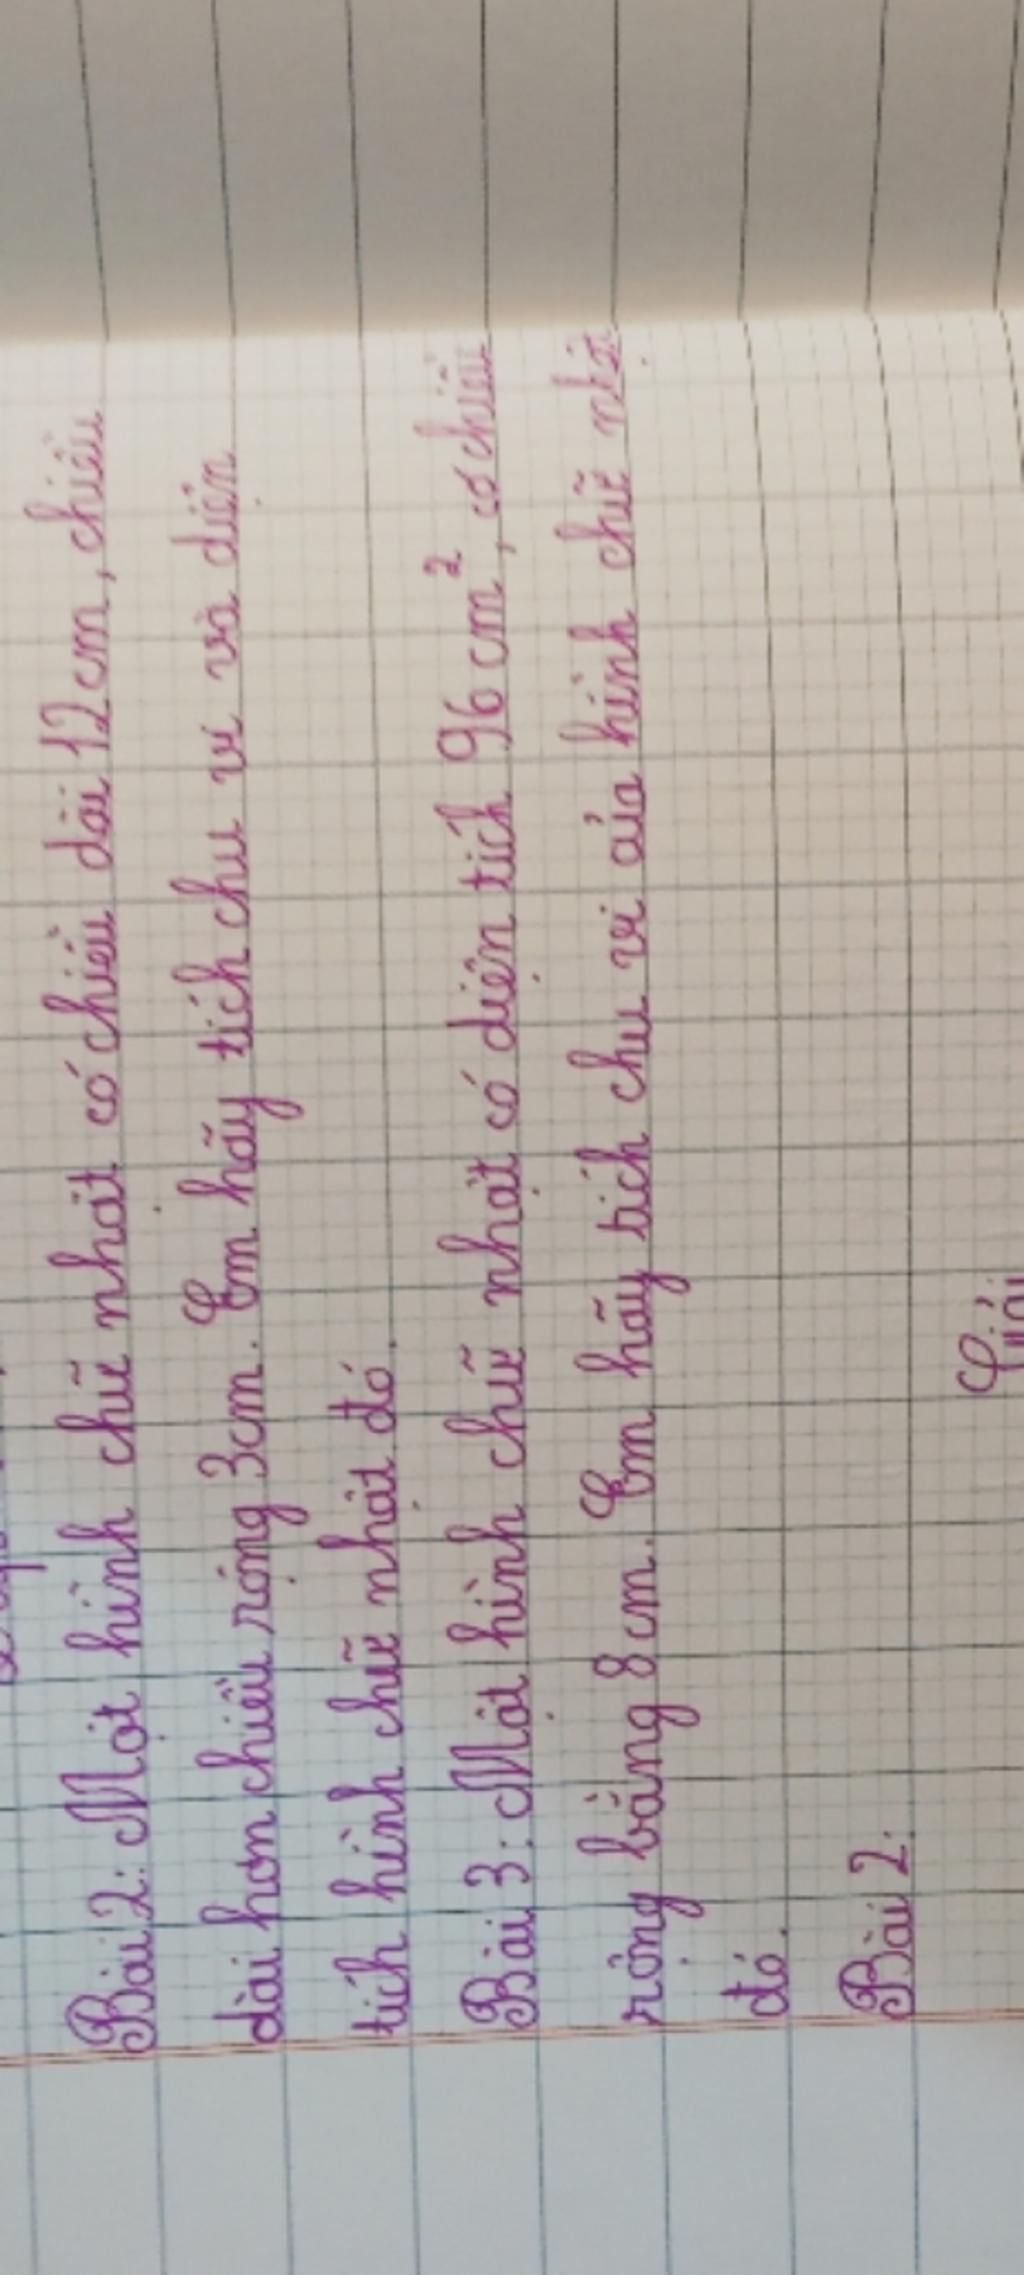 Bài 2: Một hình chữ nhật có chiều dài 12 cm, chiều
dài hơn chiều rộng 3cm. Em hãy tích chu vi và diện
tích hình chữ nhật đó.
Bài 3: Một hình chữ nhật có diện tích 96 cm², có chiều
rộng bằng 8 cm. Em hãy tích chu vi của hình chữ
đó.
Bài 2: